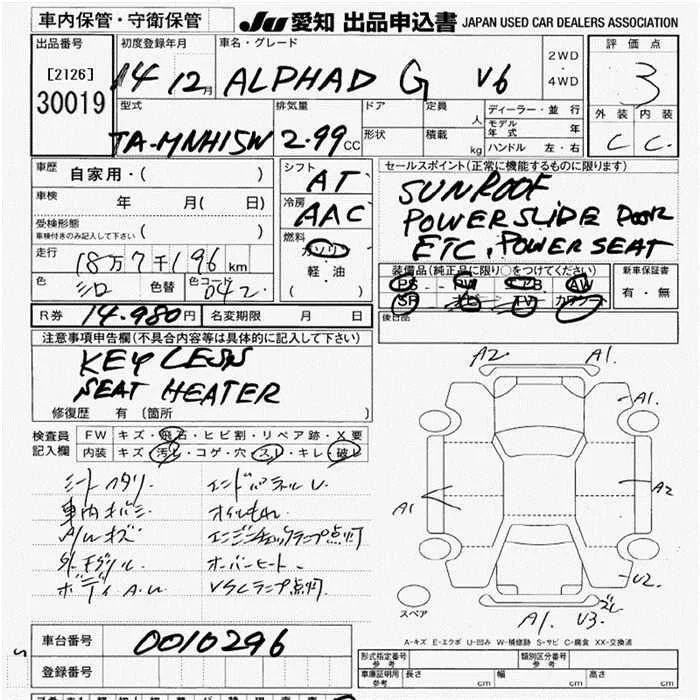 車内保管・守衛保管 Ju 愛知 出品申込書 JAPAN USED CAR DEALERS ASSOCIATION
出品番号 初度登録年月 車名・グレード 評価点
[2126] 14 12月 ALPHAD G V6 2WD・4WD 3
30019 外装 内装
型式 排気量 ドア 定員 人 ディーラー・並行 C C.
モデル年式 年
TA-MNH15W 2.99cc 形状 積載 kg ハンドル 左・右
車歴 自家用・( ) シフト AT セールスポイント(正常に機能するものに限ります)
車検 年 月( 日) 冷房 AAC SUNROOF
受検形態 POWER SLIDE DOOR
車検付きのみ記入して下さい ( ) 燃料 ガソリン ETC, POWER SEAT
走行 18万7千196km 軽・油 装備品(純正品に限り○をつけてください) 新車保証書
色 シロ 色替 色コード 042 ( ) PS PW エアB AW 有・無
SR ナビ TV カワ
R券 14.980円 名変期限 月 日 後日品
注意事項申告欄(不具合内容等は具体的に記入して下さい)
KEYLESS
SEAT HEATER
修復歴 有〔箇所 〕
検査員 FW キズ・飛石・ヒビ割・リペア跡・X要
記入欄 内装 キズ・汚レ・コゲ・穴・スレ・キレ・破レ
シートヘタリ インドパネルU.
車内キバミ オイルもれ
A/Wキズ エンジンチェックランプ点灯
外モヅル オーバーヒート.
ボディA.U VSCランプ点灯.
A2 A1.
A1.
A1 A2
U2
A1. U3. ズレ
スペア
A-キズ E-エクボ U-凹み W-補修跡 S-サビ C-腐食 XX-交換済
車台番号 0010296
登録番号
形式指定番号 参考 類別区分番号 参考
車庫証明用 参考 長さ cm 幅 cm 高さ cm